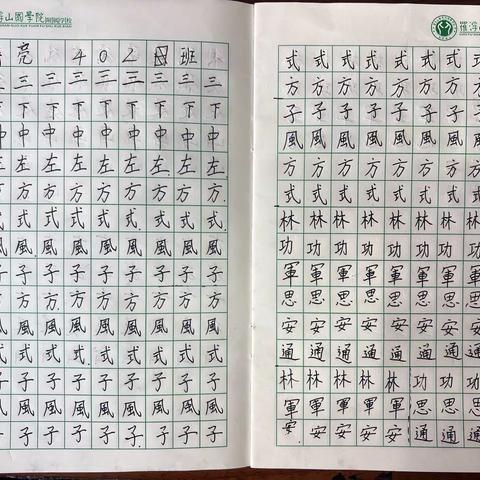 浮山國學院
亮 402 班
三三三三三三三三三
下下下下下下下下下
中中中中中中中中中
左左左左左左左左左
方方方方方方方方方
式式式式式式式式式
風風風風風風風風風
子子子子子子子子子
方方方方方方方方方
風風風風風風風風風
式式式式式式式式式
子子子子子子子子子
風風風風風風風風風
子子子子子子子子子
羅浮
式式式式式式式式
方方方方方方方方
子子子子子子子子
風風風風風風風風
方方方方方方方方
式式式式式式式式
林林林林林林林林
功功功功功功功功
軍軍軍軍軍軍軍軍
思思思思思思思思
安安安安安安安安
通通通通通通通通
林林林林林功功功
軍軍軍軍軍思思思
安安安安安通通通